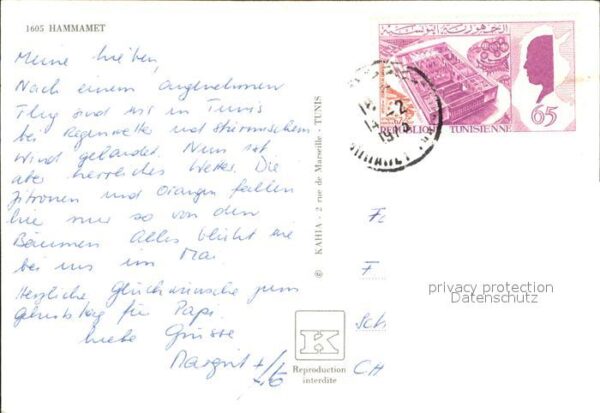 1605 HAMMAMET
Meine Lieben,
Nach einem angenehmen
Flug sind wir in Tunis
bei Regenwetter und stürmischem
Wind gelandet. Nun ist
aber herrliches Wetter. Die
Zitronen und Orangen fallen
hier nur so von den
Bäumen. Alles blüht wie
bei uns im Mai.
Herzliche Glückwünsche zum
Geburtstag für Papi.
Liebe Grüsse
Margrit
© KAHIA - 2 rue de Marseille - TUNIS
الجمهورية التونسية
REPUBLIQUE TUNISIENNE
65
F
Sch
CH
privacy protection
Datenschutz
K
Reproduction
interdite